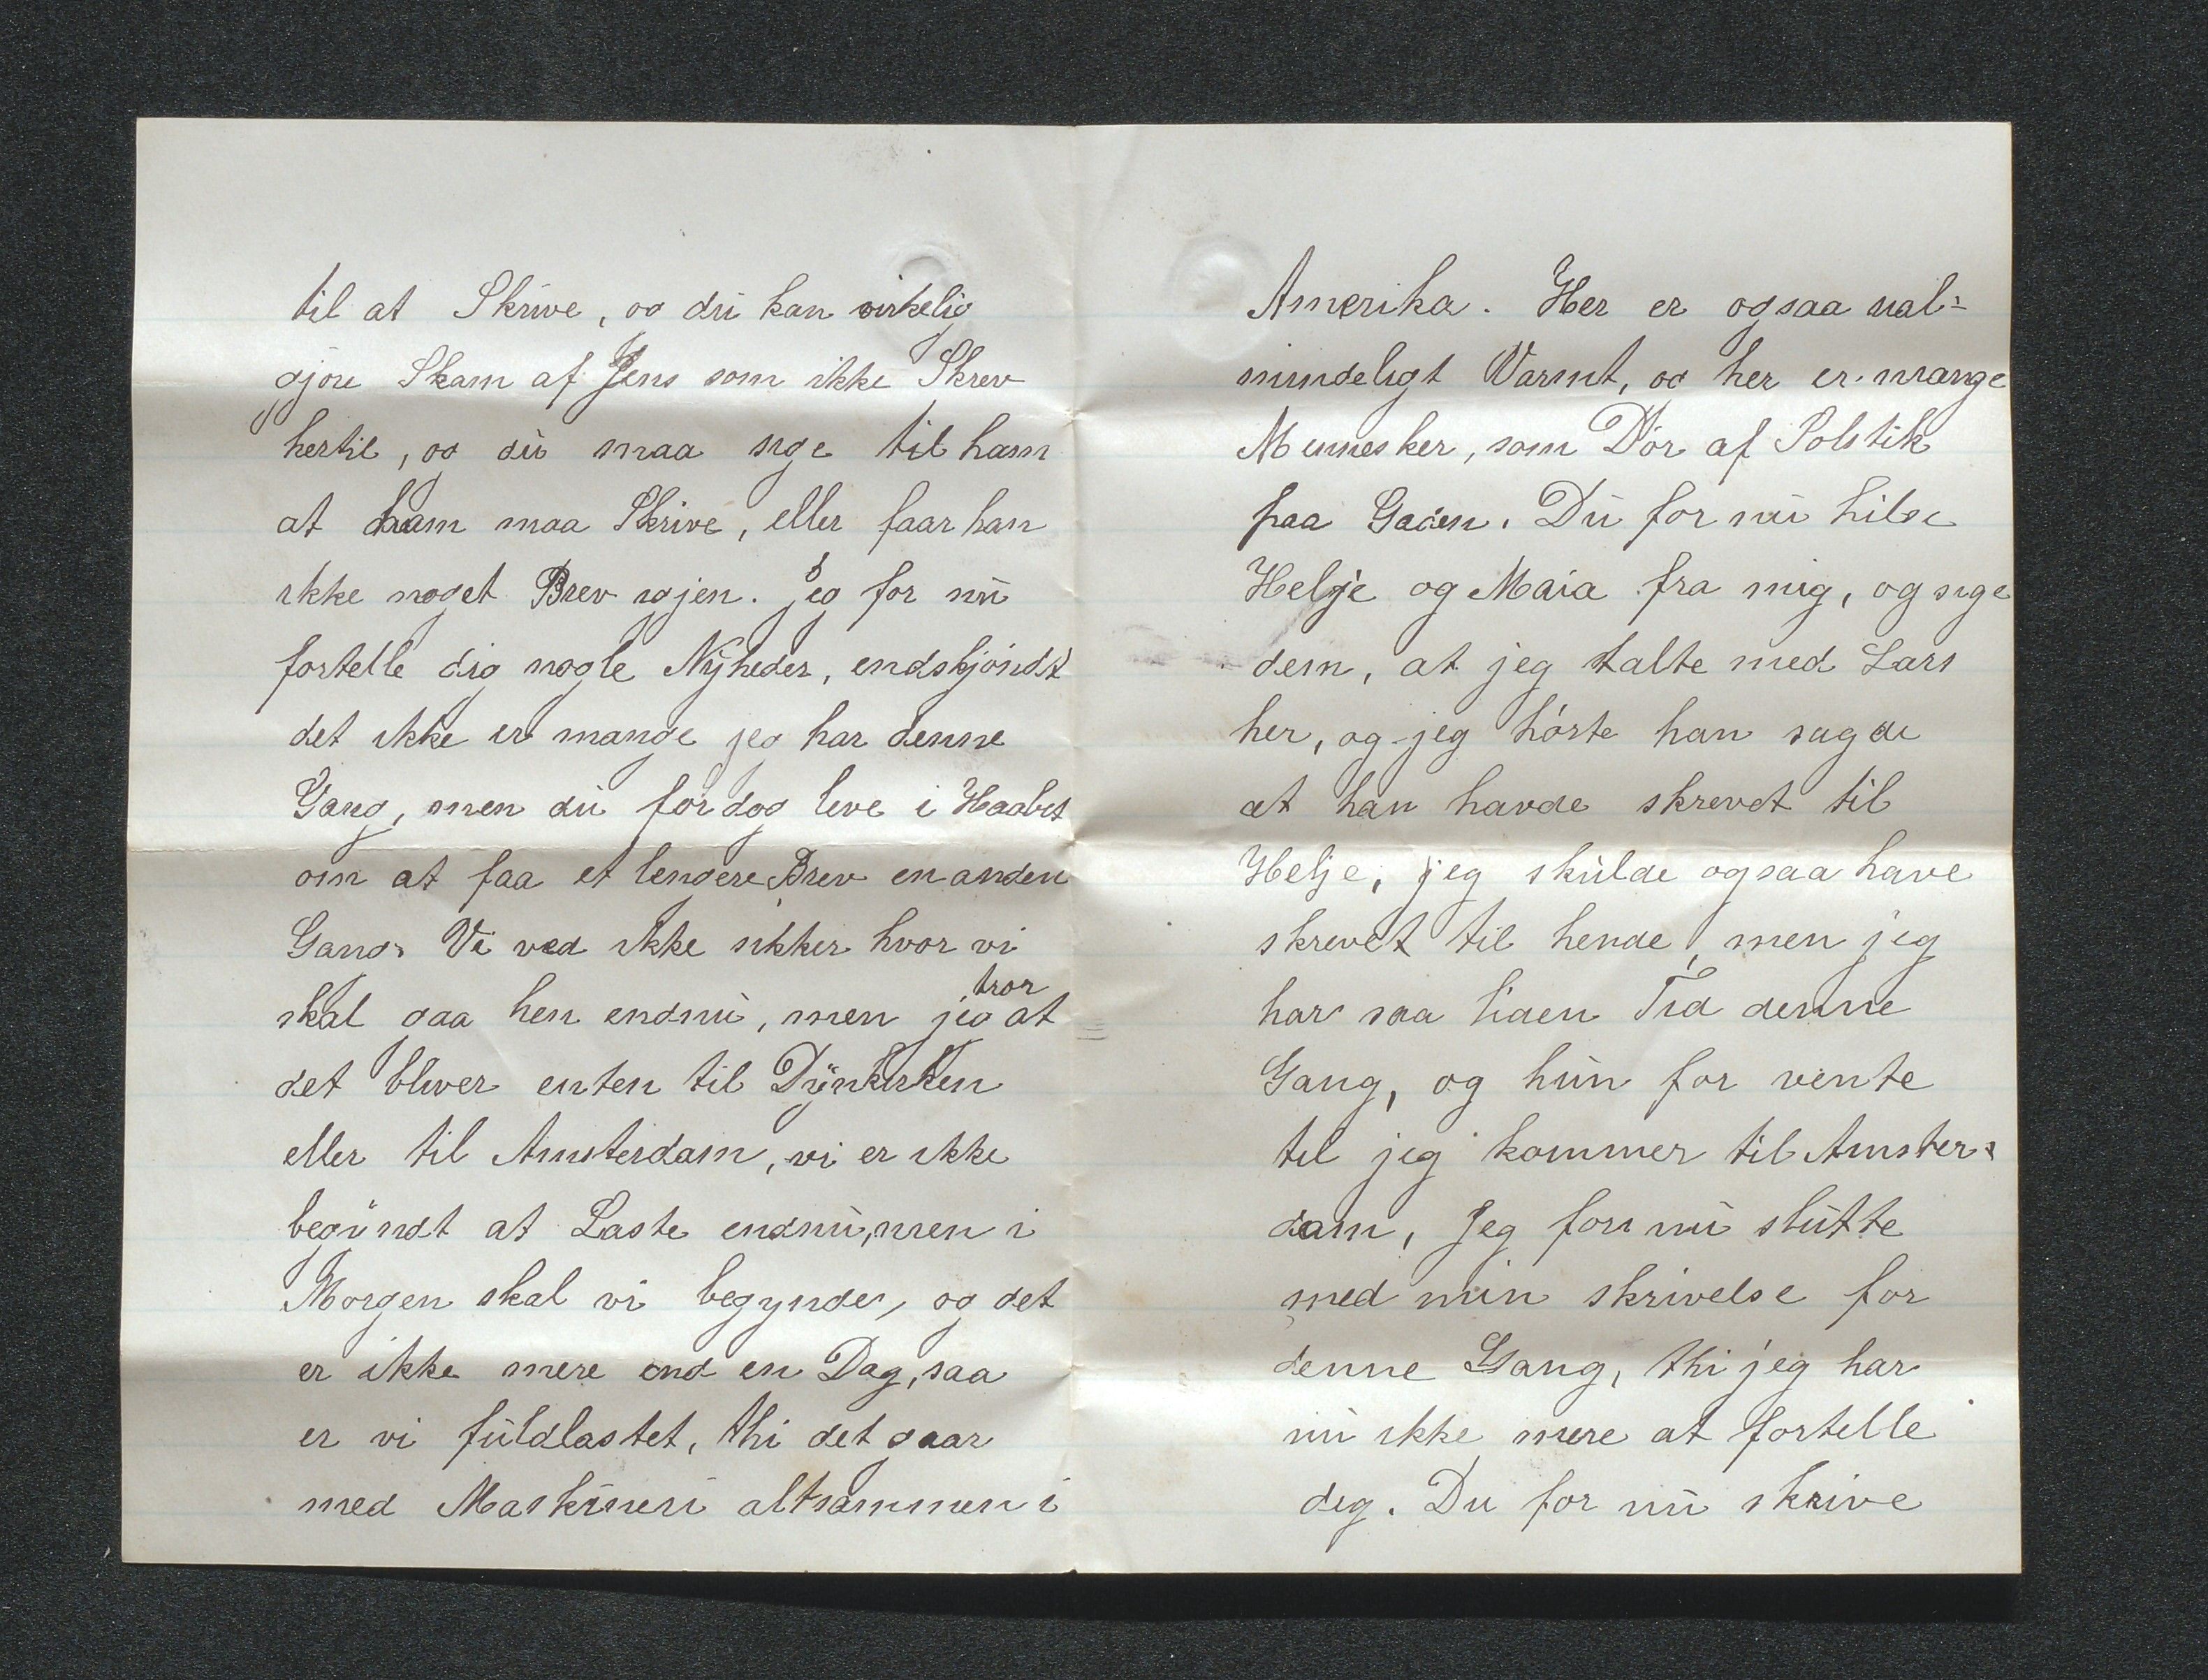 til at Skrive, og du kan virkelig
gjöre Skam af Jens som ikke Skrev
hertil, og du maa sige til ham
at ham maa Skrive, eller faar han
ikke noget Brev igjen. jeg for nu
fortelle dig nogle Nyheder, endskjöndt
det ikke er mange jeg har denne
Gang, men du for dog leve i Haabet
om at faa et lengere Brev en anden
Gang. Vi ved ikke sikker hvor vi
skal gaa hen endnu, men jeg tror at
det bliver enten til Dynkirken
eller til Amsterdam, vi er ikke
begyndt at Laste endnu, men i
Morgen skal vi begynde, og det
er ikke mere end en Dag, saa
er vi fuldlastet, thi det gaar
med Maskineri altsammen i
Amerika. Her er ogsaa ual=
mindeligt Varmt, og her er mange
Mennesker, som Dör af Solstik
paa Gaden. Du for nu hilse
Helje og Maia fra mig, og sige
dem, at jeg talte med Lars
her, og jeg hörte han sagde
at han havde skrevet til
Helje, jeg skulde ogsaa have
skrevet til hende, men jeg
har saa liden Tid denne
Gang, og hun for vente
til jeg kommer til Amster=
dam, Jeg for nu slutte
med min skrivelse for
denne Gang, thi jeg har
nu ikke mere at fortelle
dig. Du for nu skrive